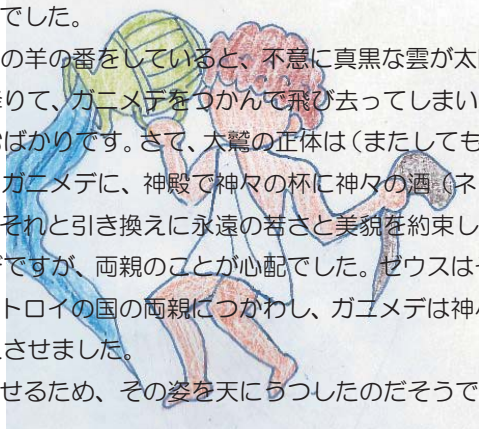 でした。
の羊の番をしていると、不意に真黒な雲が太
降りて、ガニメデをつかんで飛び去ってしまい
ばかりです。さて、大鷲の正体は（またしても
ガニメデに、神殿で神々の杯に神々の酒（ネ
それと引き換えに永遠の若さと美貌を約束し
ですが、両親のことが心配でした。ゼウスは
トロイの国の両親につかわし、ガニメデは神
させました。
せるため、その姿を天にうつしたのだそうで